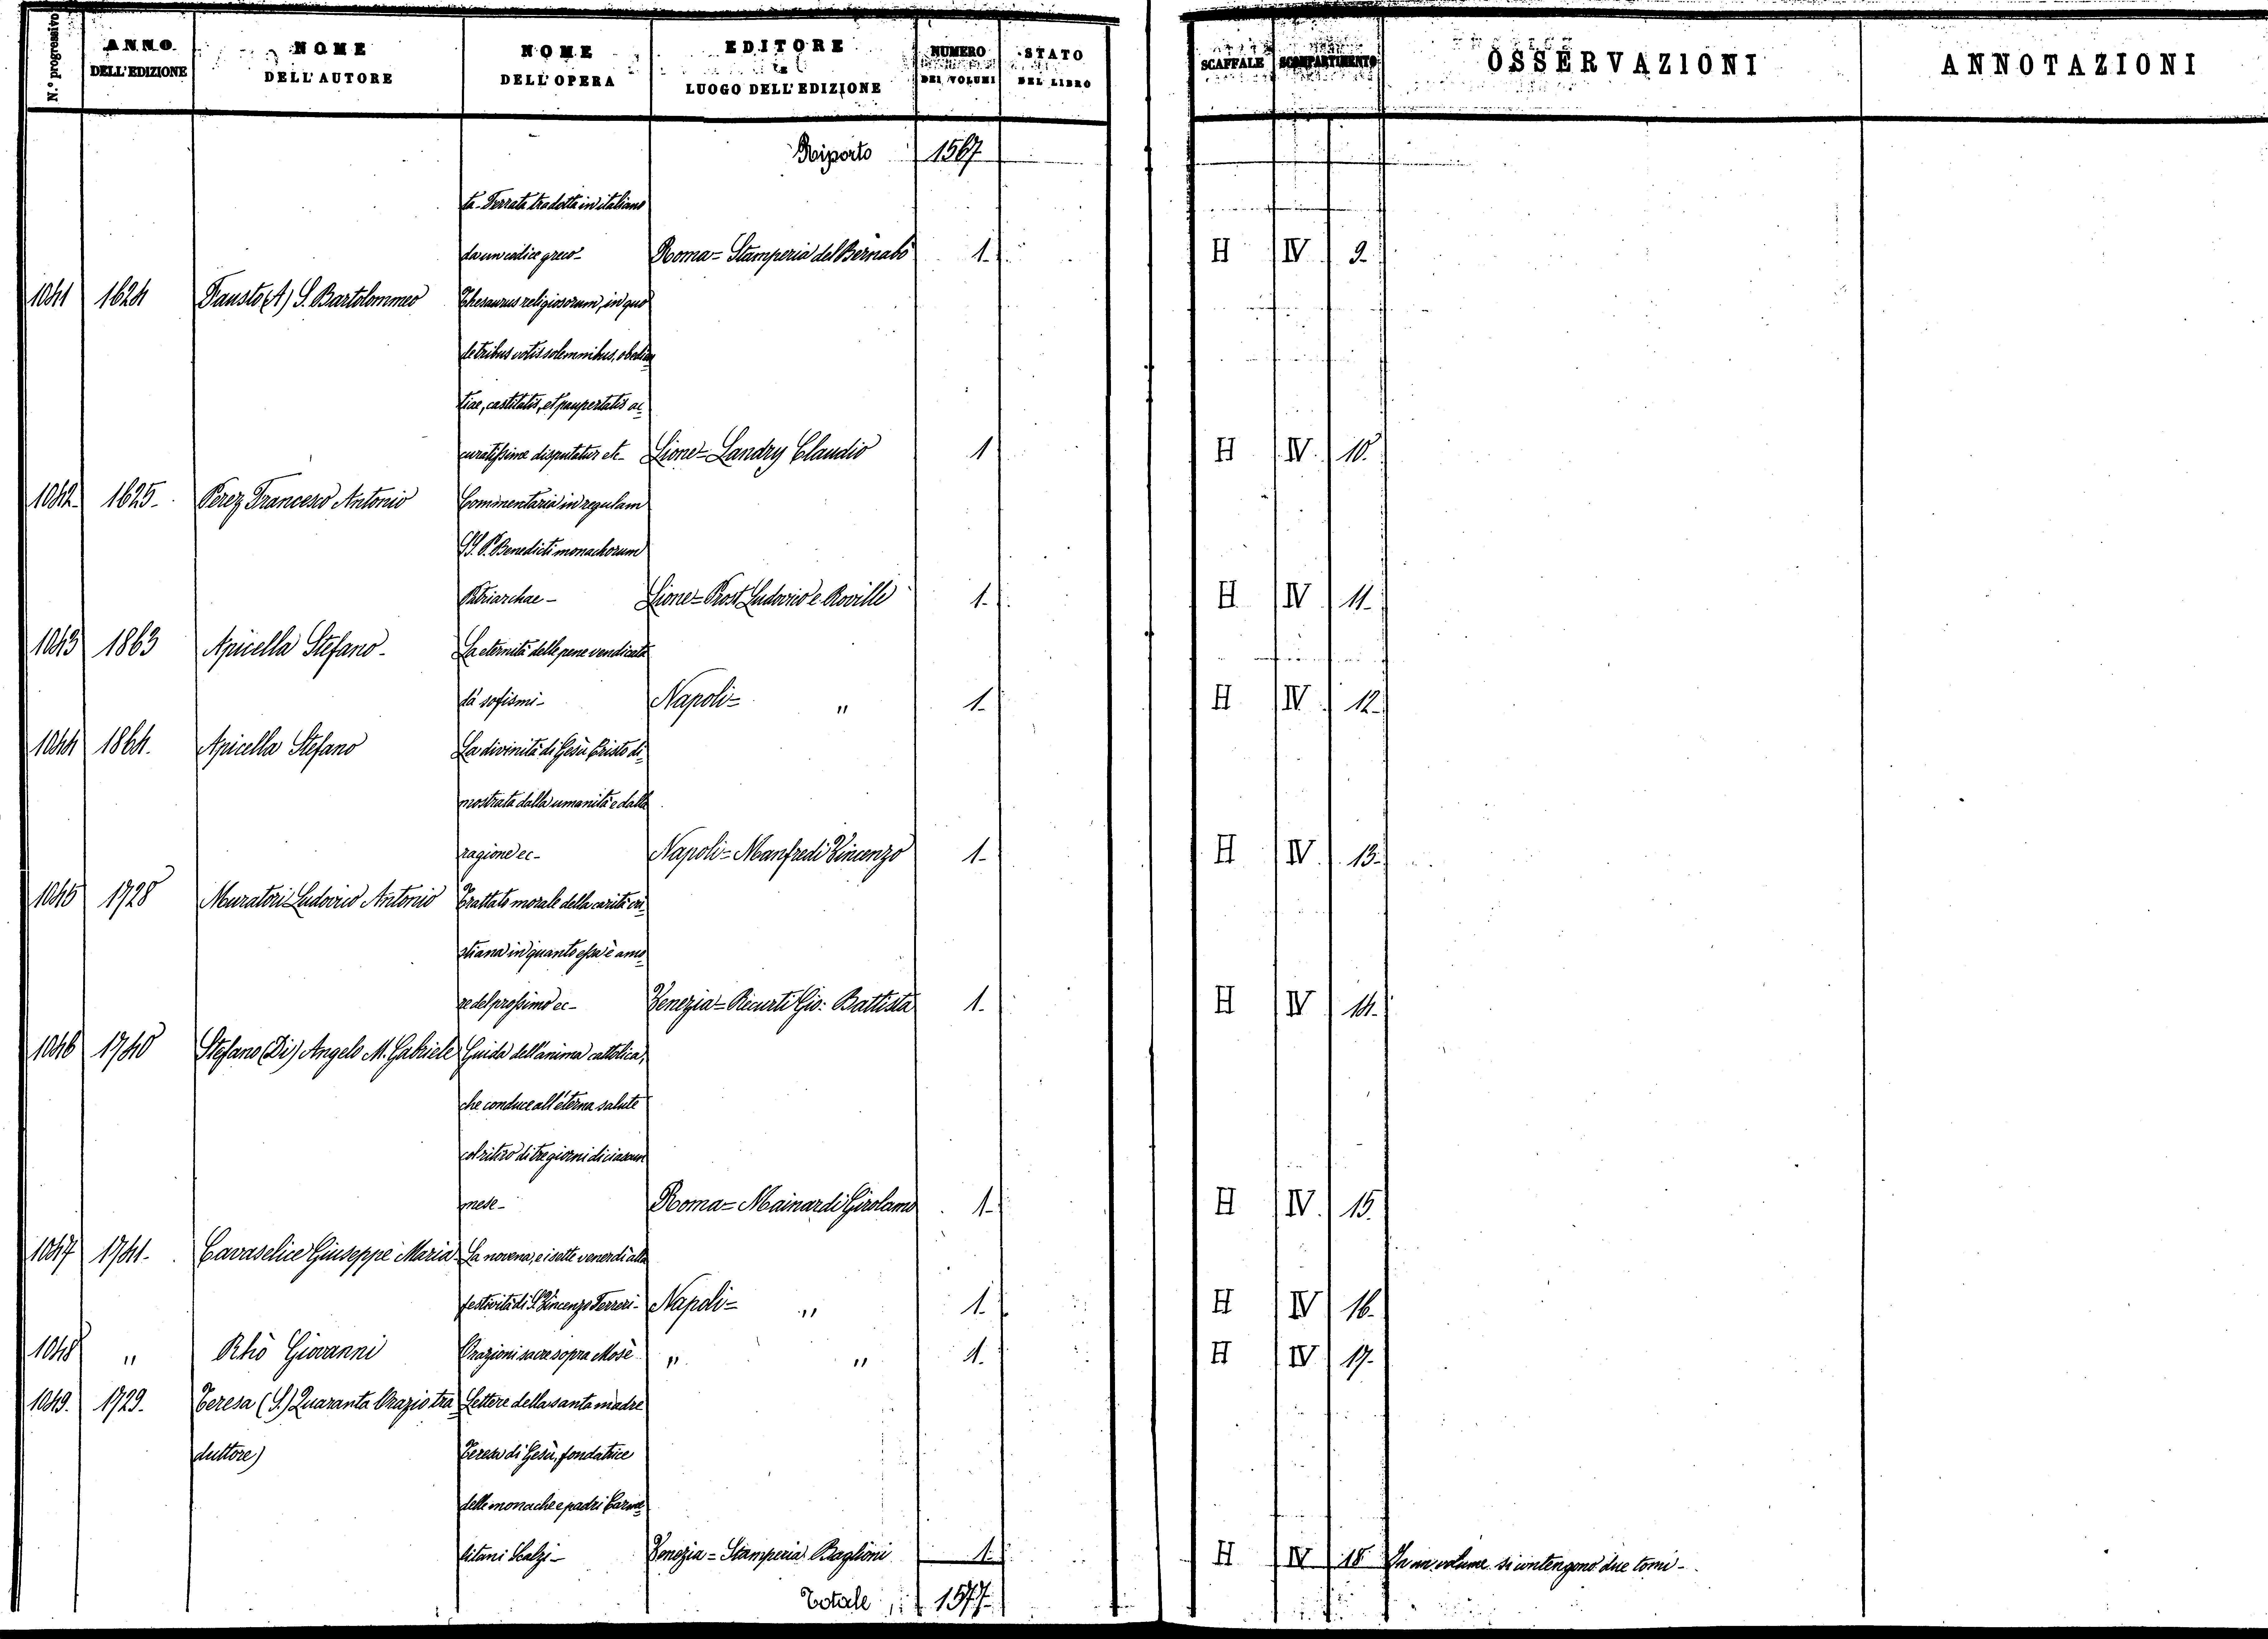 N.º progressivo | ANNO DELL'EDIZIONE | NOME DELL'AUTORE | NOME DELL'OPERA | EDITORE e LUOGO DELL'EDIZIONE | NUMERO DEI VOLUMI | STATO DEL LIBRO | SCAFFALE | SCOMPARTIMENTO | OSSERVAZIONI | ANNOTAZIONI
Riporto 1567
ta-Ferrata tradotta in italiano
da un codice greco- Roma= Stamperia del Bernabò 1. H IV 9.
1041 1624 Fausto (A) S. Bartolommeo Thesaurus religiosorum, in quo
de tribus votis solemnibus, obedien-
tiae, castitatis, et paupertatis ac-
curatissime disputatur etc- Lione= Landry Claudio 1 H IV 10.
1042- 1625- Perez Francesco Antonio Commentaria in regulam
SS. P. Benedicti monachorum
Patriarchae- Lione= Prost Ludovico e Roville 1. H IV 11.
1043 1863 Apicella Stefano- La eternità delle pene vendicata
da' sofismi- Napoli= " 1. H IV 12.
1044 1864. Apicella Stefano La divinità di Gesù Cristo di-
mostrata dalla umanità e dalla
ragione ec- Napoli= Manfredi Vincenzo 1- H IV 13.
1045 1728 Muratori Ludovico Antonio Trattato morale della carità cri-
stiana in quanto essa è amo-
re del prossimo ec- Venezia= Recurti Gio: Battista 1. H IV 14.
1046 1740 Stefano (Di) Angelo M. Gabriele Guida dell'anima cattolica,
che conduce all'eterna salute
col ritiro di tre giorni di ciascun
mese- Roma= Mainardi Girolamo 1- H IV 15.
1047 1741- Cavaselice Giuseppe Maria La novena, e i sette venerdì alla
festività di S. Vincenzo Ferreri- Napoli= " 1. H IV 16.
1048 " Rhò Giovanni Orazioni sacre sopra Mosè " " 1. H IV 17.
1049. 1729. Teresa (S.) Quaranta Orazio tra- Lettere della santa madre
duttore) Teresa di Gesù, fondatrice
delle monache e padri Carme-
litani Scalzi- Venezia= Stamperia Baglioni 1. H IV 18 In un volume si contengono due tomi-
Totale 1577-